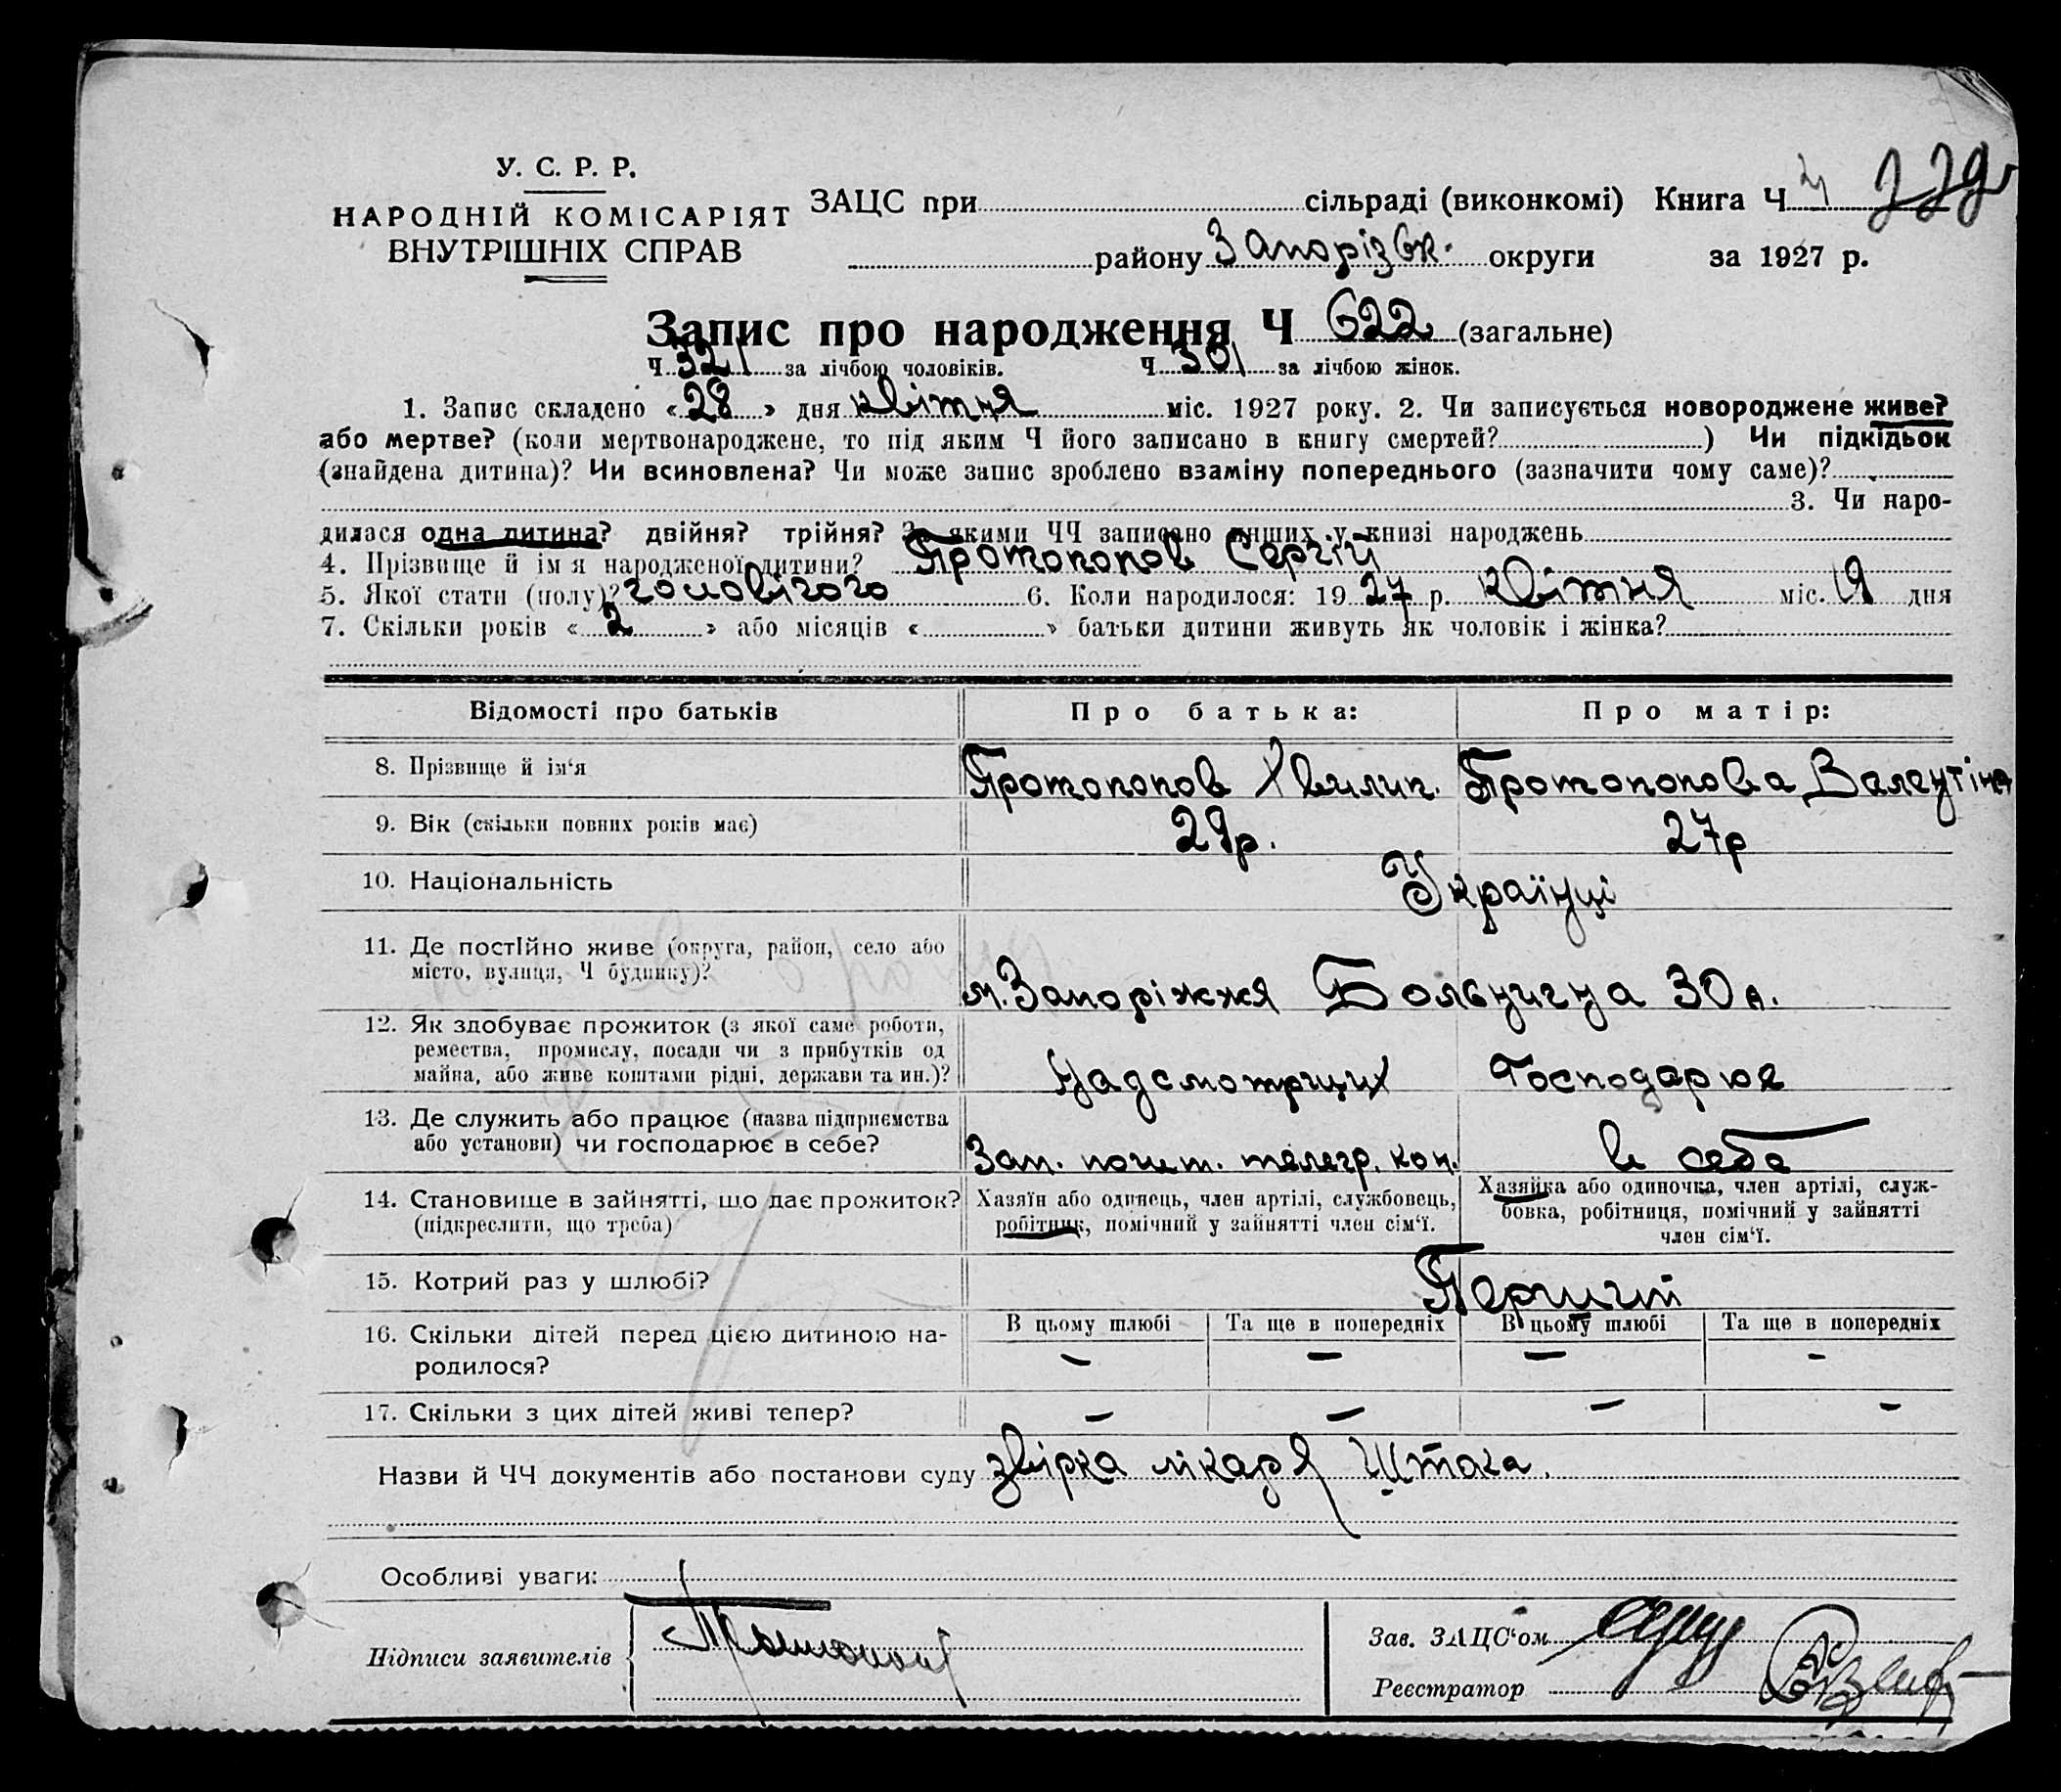 У. С. Р. Р.
НАРОДНІЙ КОМІСАРІЯТ
ВНУТРІШНІХ СПРАВ
ЗАЦС при сільраді (виконкомі) Книга Ч
району Запорізьк. округи за 1927 р.
Запис про народження Ч 622 (загальне)
Ч 321 за лічбою чоловіків. Ч 301 за лічбою жінок.
1. Запис складено «28» дня квітня міс. 1927 року. 2. Чи записується новороджене живе?
або мертве? (коли мертвонароджене, то під яким Ч його записано в книгу смертей? ) Чи підкідьок
(знайдена дитина)? Чи всиновлена? Чи може запис зроблено взаміну попереднього (зазначити чому саме)?
3. Чи наро-
дилася одна дитина? двійня? трійня? За якими ЧЧ записано инших у книзі народжень
4. Прізвище й ім'я народженої дитини? Протопопов Сергій
5. Якої стати (полу)? чоловічого 6. Коли народилося: 1927 р. квітня міс. 19 дня
7. Скільки років «2» або місяців « » батьки дитини живуть як чоловік і жінка?
Відомості про батьків Про батька: Про матір:
8. Прізвище й ім'я Протопопов Хвилип. Протопопова Валентіна
9. Вік (скільки повних років має) 29р. 27р
10. Національність Українці
11. Де постійно живе (округа, район, село або
місто, вулиця, Ч будинку)? м. Запоріжжя Больнична 30 а.
12. Як здобуває прожиток (з якої саме роботи,
ремества, промислу, посади чи з прибутків од
майна, або живе коштами рідні, держави та ин.)? Надсмотрщих Господарює
13. Де служить або працює (назва підприємства
або установи) чи господарює в себе? Зап. почт. телегр. кон. в себе
14. Становище в зайнятті, що дає прожиток? Хазяїн або одинець, член артілі, службовець, Хазяйка або одиночка, член артілі, служ-
(підкреслити, що треба) робітник, помічний у зайнятті член сім'ї. бовка, робітниця, помічний у зайнятті
член сім'ї.
15. Котрий раз у шлюбі? Перший
16. Скільки дітей перед цією дитиною на- В цьому шлюбі Та ще в попередніх В цьому шлюбі Та ще в попередніх
родилося? — — — —
17. Скільки з цих дітей живі тепер? — — — —
Назви й ЧЧ документів або постанови суду звірка лікаря
Особливі уваги:
Підписи заявителів
Зав. ЗАЦС'ом
Реєстратор